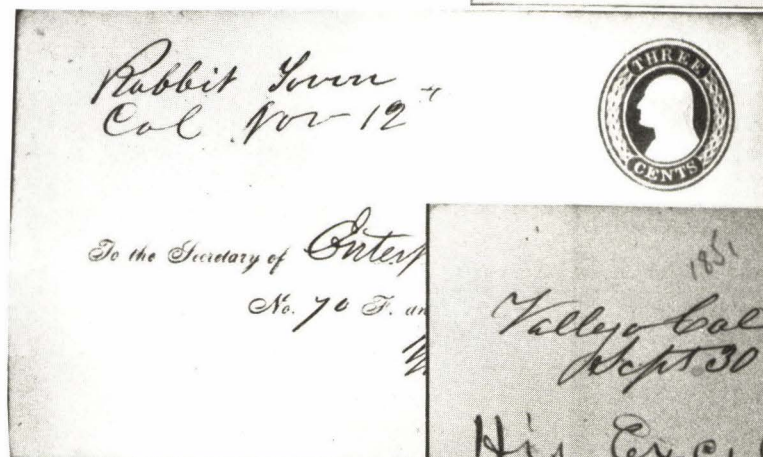 Rabbit Town
Cal Nov 12th
THREE
CENTS
To the Secretary of Enterp
No. 70 F. an
1851
Vallejo Cal
Sept 30
His Exc.